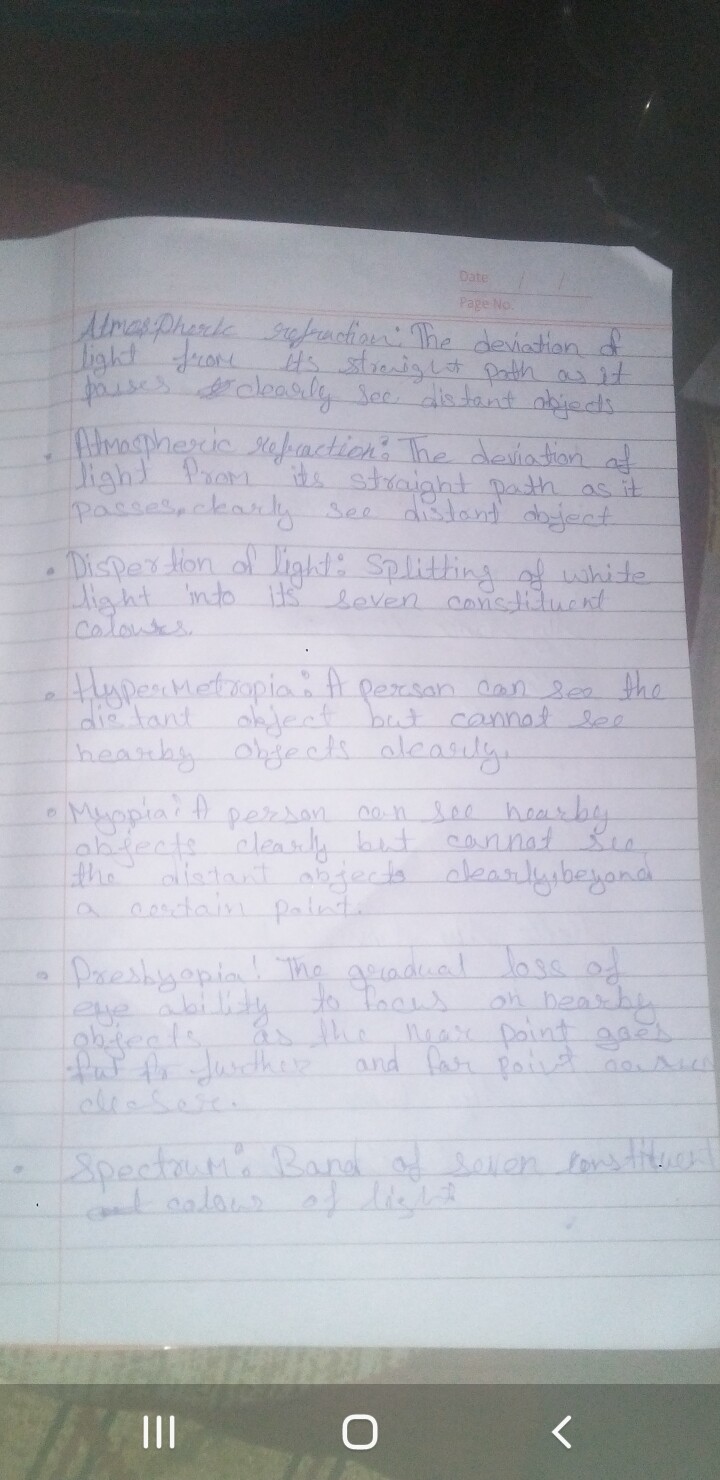 Date / /
Page No.
Atmospheric refraction: The deviation of
light from its straight path as it
passes clearly see distant objects
• Atmospheric refraction: The deviation of
light from its straight path as it
passes, clearly see distant object
• Dispertion of light: Splitting of white
light into its seven constituent
colours.
• Hypermetropia: A person can see the
distant object but cannot see
nearby objects clearly.
• Myopia: A person can see nearby
objects clearly but cannot see
the distant objects clearly, beyond
a certain point.
• Presbyopia: The gradual loss of
eye ability to focus on nearby
objects as the near point goes
further and far point
closer.
• Spectrum: Band of seven constituent
colour of light